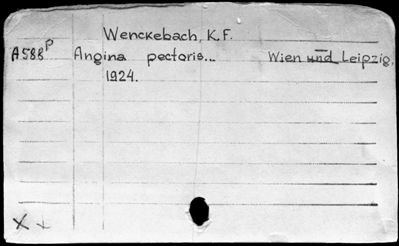 Wenckebach, K.F.
A588P Angina pectoris... Wien und Leipzig,
1924.
X